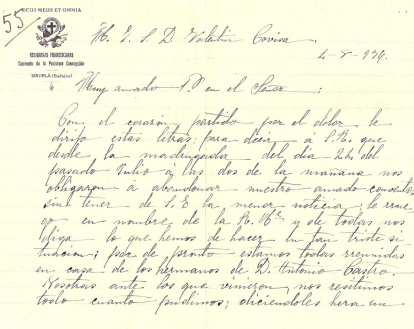 55
DEUS MEUS ET OMNIA
M. I. S. D. Valentín Covisa.
RELIGIOSAS FRANCISCANAS
Convento de la Purísima Concepción
SIRUELA (Badajoz)
4-8-936.
Muy amado P. en el Señor:
Con el corazón partido por el dolor le
dirijo estas letras; para decir á S. R. que
desde la madrugada del día 24 del
pasado Julio á las dos de la mañana nos
obligaron a abandonar nuestro amado convento
sin tener de S. E la menor noticia; le rue
go en nombre de la R. Me y de todas nos
diga lo que hemos de hacer en tan triste si
tuación; por de pronto estamos todas reunidas
en casa de los hermanos de D. Antonio Castro.
Nosotras ante los que vinieron, nos resistimos
todo cuanto pudimos; diciéndoles hera en